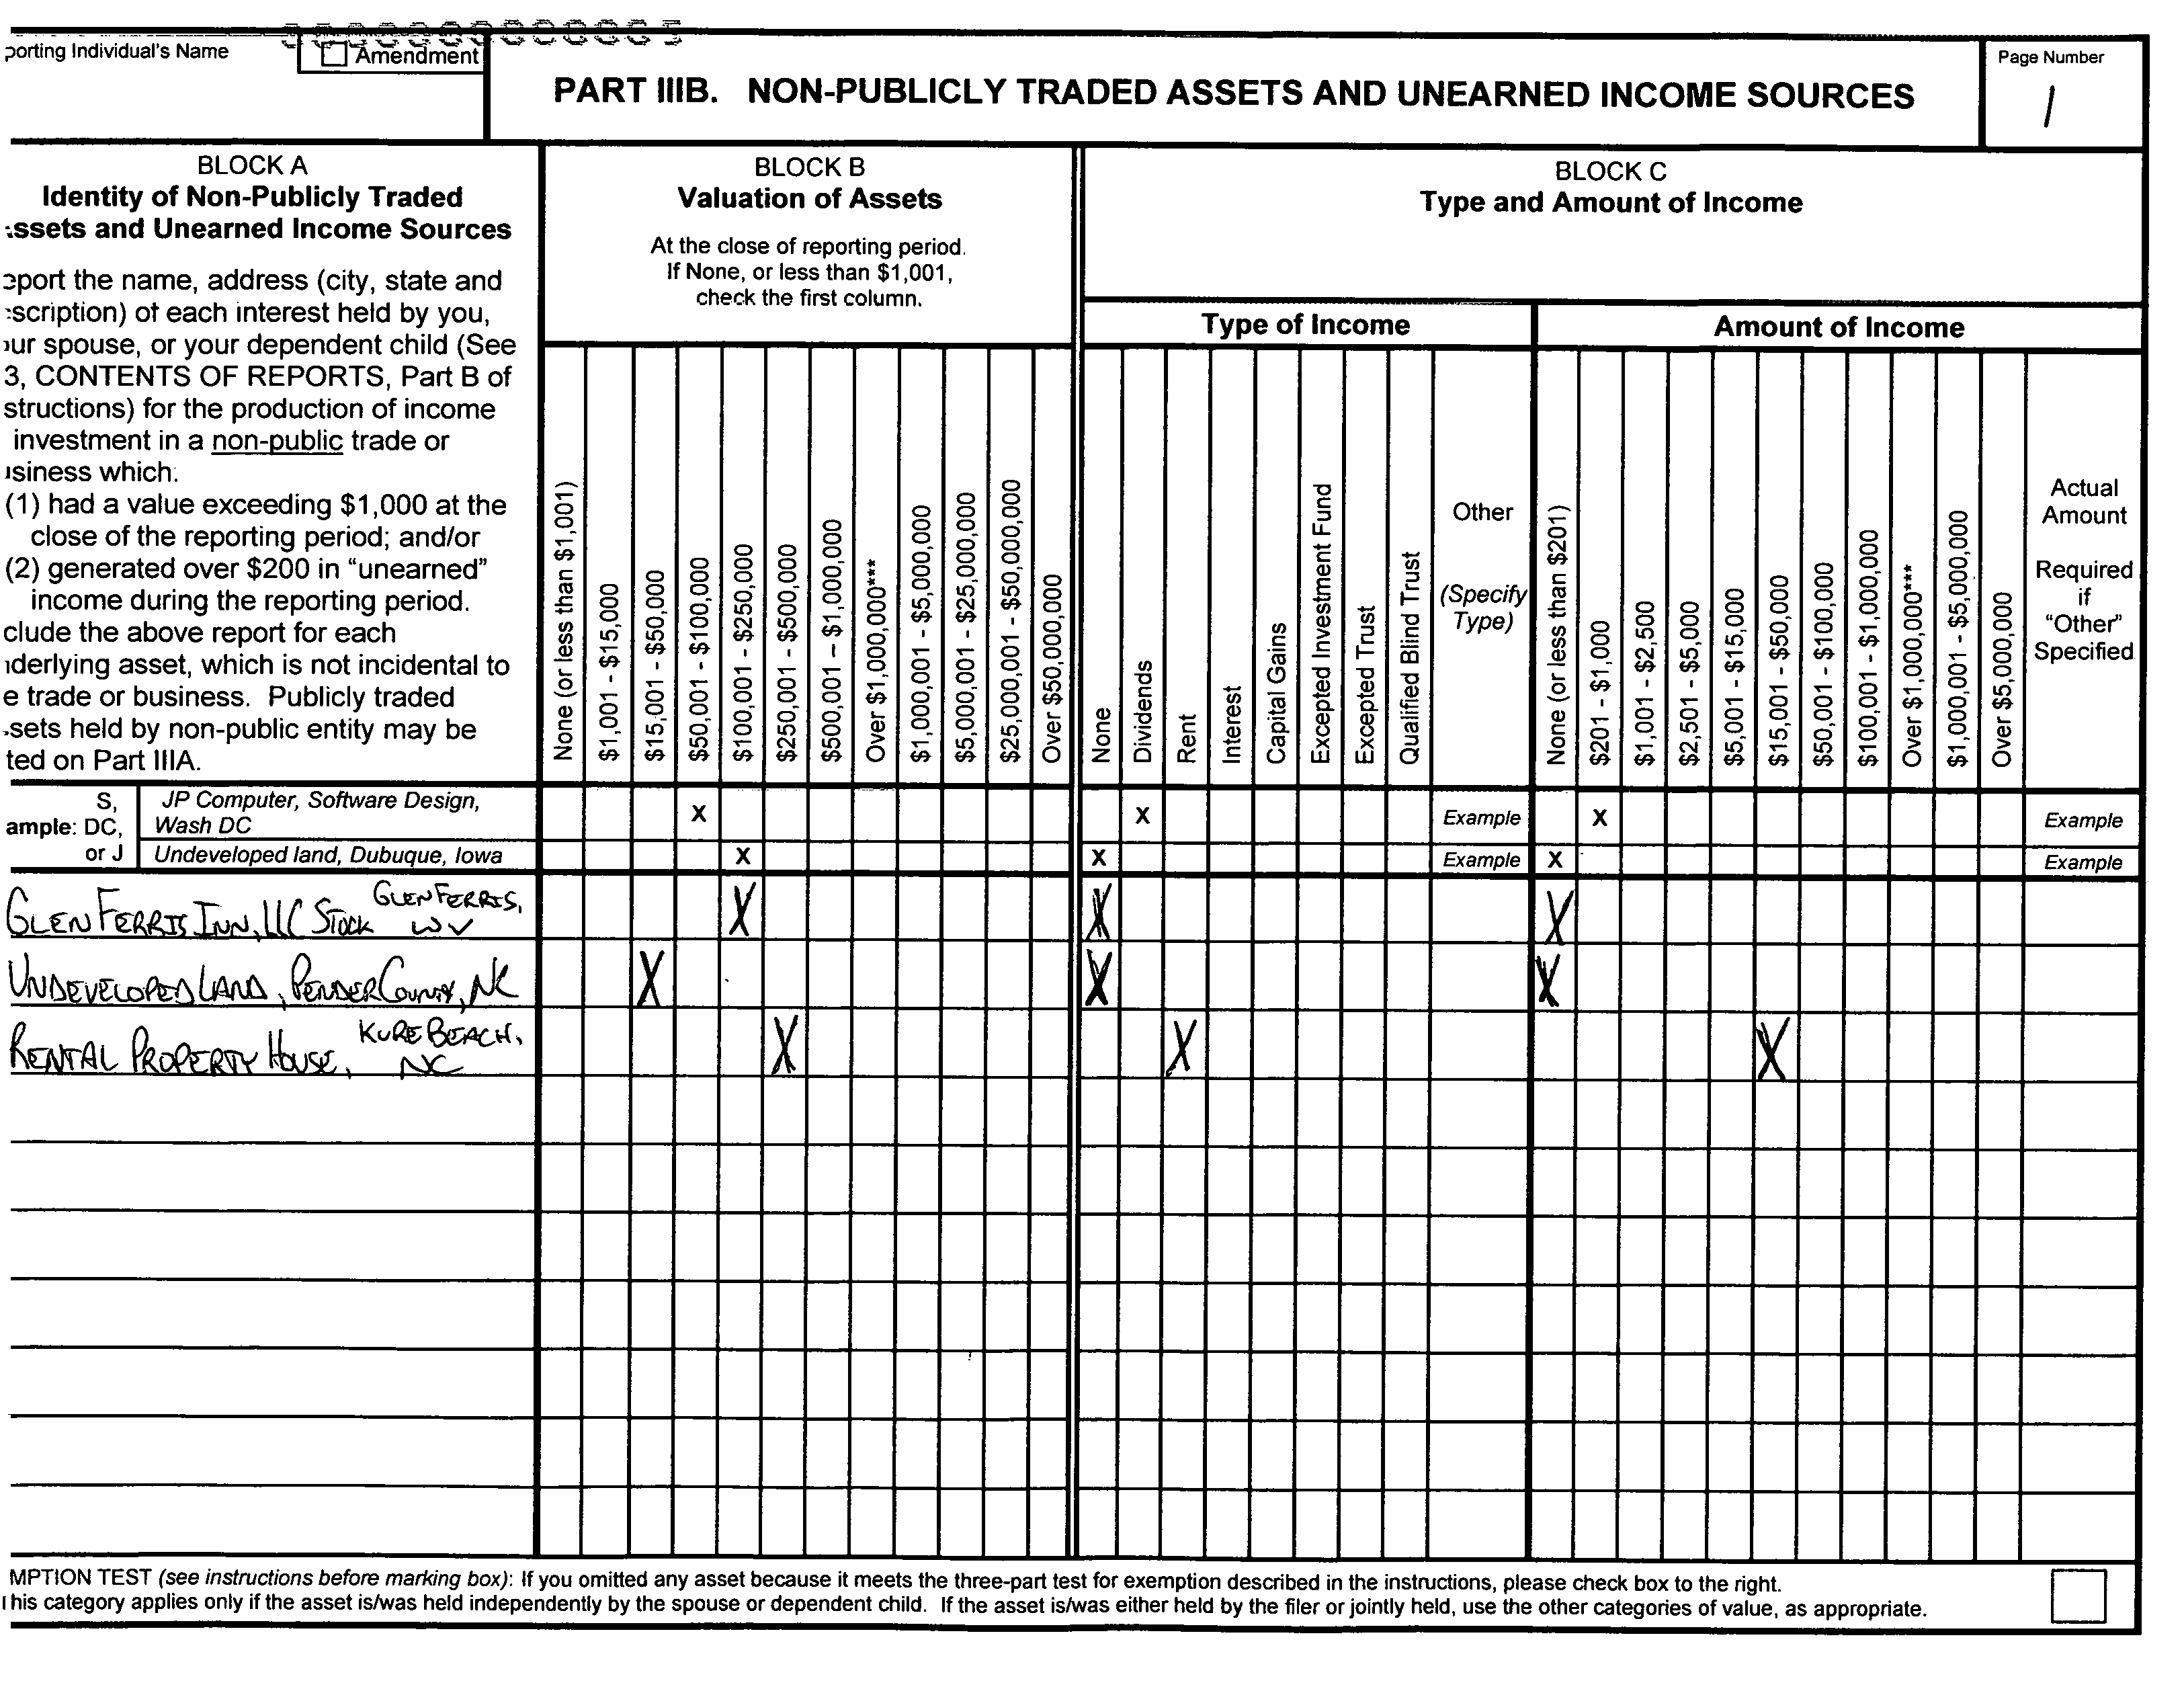 porting Individual's Name
Amendment
PART IIIB. NON-PUBLICLY TRADED ASSETS AND UNEARNED INCOME SOURCES
Page Number
1
BLOCK A
Identity of Non-Publicly Traded
ssets and Unearned Income Sources
eport the name, address (city, state and
scription) of each interest held by you,
our spouse, or your dependent child (See
3, CONTENTS OF REPORTS, Part B of
structions) for the production of income
investment in a non-public trade or
usiness which:
(1) had a value exceeding $1,000 at the
close of the reporting period; and/or
(2) generated over $200 in “unearned”
income during the reporting period.
clude the above report for each
nderlying asset, which is not incidental to
e trade or business. Publicly traded
sets held by non-public entity may be
ted on Part IIIA.
BLOCK B
Valuation of Assets
At the close of reporting period.
If None, or less than $1,001,
check the first column.
None (or less than $1,001)
$1,001 - $15,000
$15,001 - $50,000
$50,001 - $100,000
$100,001 - $250,000
$250,001 - $500,000
$500,001 – $1,000,000
Over $1,000,000***
$1,000,001 - $5,000,000
$5,000,001 - $25,000,000
$25,000,001 - $50,000,000
Over $50,000,000
BLOCK C
Type and Amount of Income
Type of Income
None
Dividends
Rent
Interest
Capital Gains
Excepted Investment Fund
Excepted Trust
Qualified Blind Trust
Other
(Specify
Type)
Amount of Income
None (or less than $201)
$201 - $1,000
$1,001 - $2,500
$2,501 - $5,000
$5,001 - $15,000
$15,001 - $50,000
$50,001 - $100,000
$100,001 - $1,000,000
Over $1,000,000***
$1,000,001 - $5,000,000
Over $5,000,000
Actual
Amount
Required
if
“Other”
Specified
S,
ample: DC,
or J
JP Computer, Software Design,
Wash DC
X X Example X Example
Undeveloped land, Dubuque, Iowa X X Example X Example
GLEN FERRIS INN, LLC STOCK GLEN FERRIS, WV X X X
UNDEVELOPED LAND, PENDER COUNTY, NC X X X
RENTAL PROPERTY HOUSE, KURE BEACH, NC X X X
MPTION TEST (see instructions before marking box): If you omitted any asset because it meets the three-part test for exemption described in the instructions, please check box to the right.
This category applies only if the asset is/was held independently by the spouse or dependent child. If the asset is/was either held by the filer or jointly held, use the other categories of value, as appropriate.